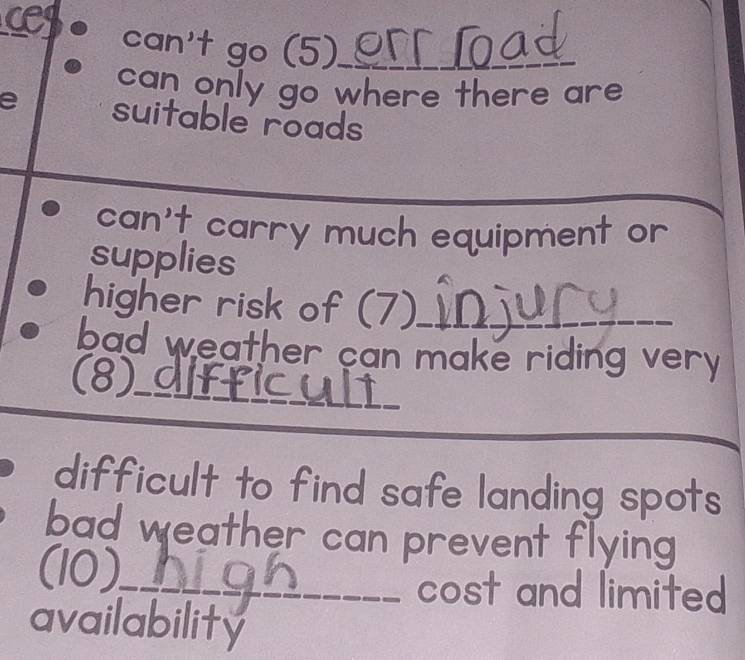 ces
• can't go (5) orr road
• can only go where there are
e
suitable roads
• can't carry much equipment or
supplies
• higher risk of (7) injury
• bad weather can make riding very
(8) difficult
• difficult to find safe landing spots
• bad weather can prevent flying
(10) high cost and limited
availability